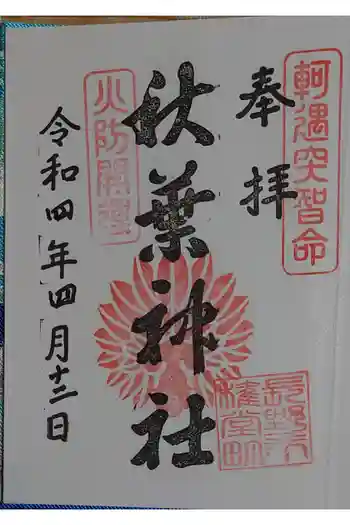 軻遇突智命
奉拝
秋葉神社
火防開運
長野市
権堂町
令和四年四月十二日